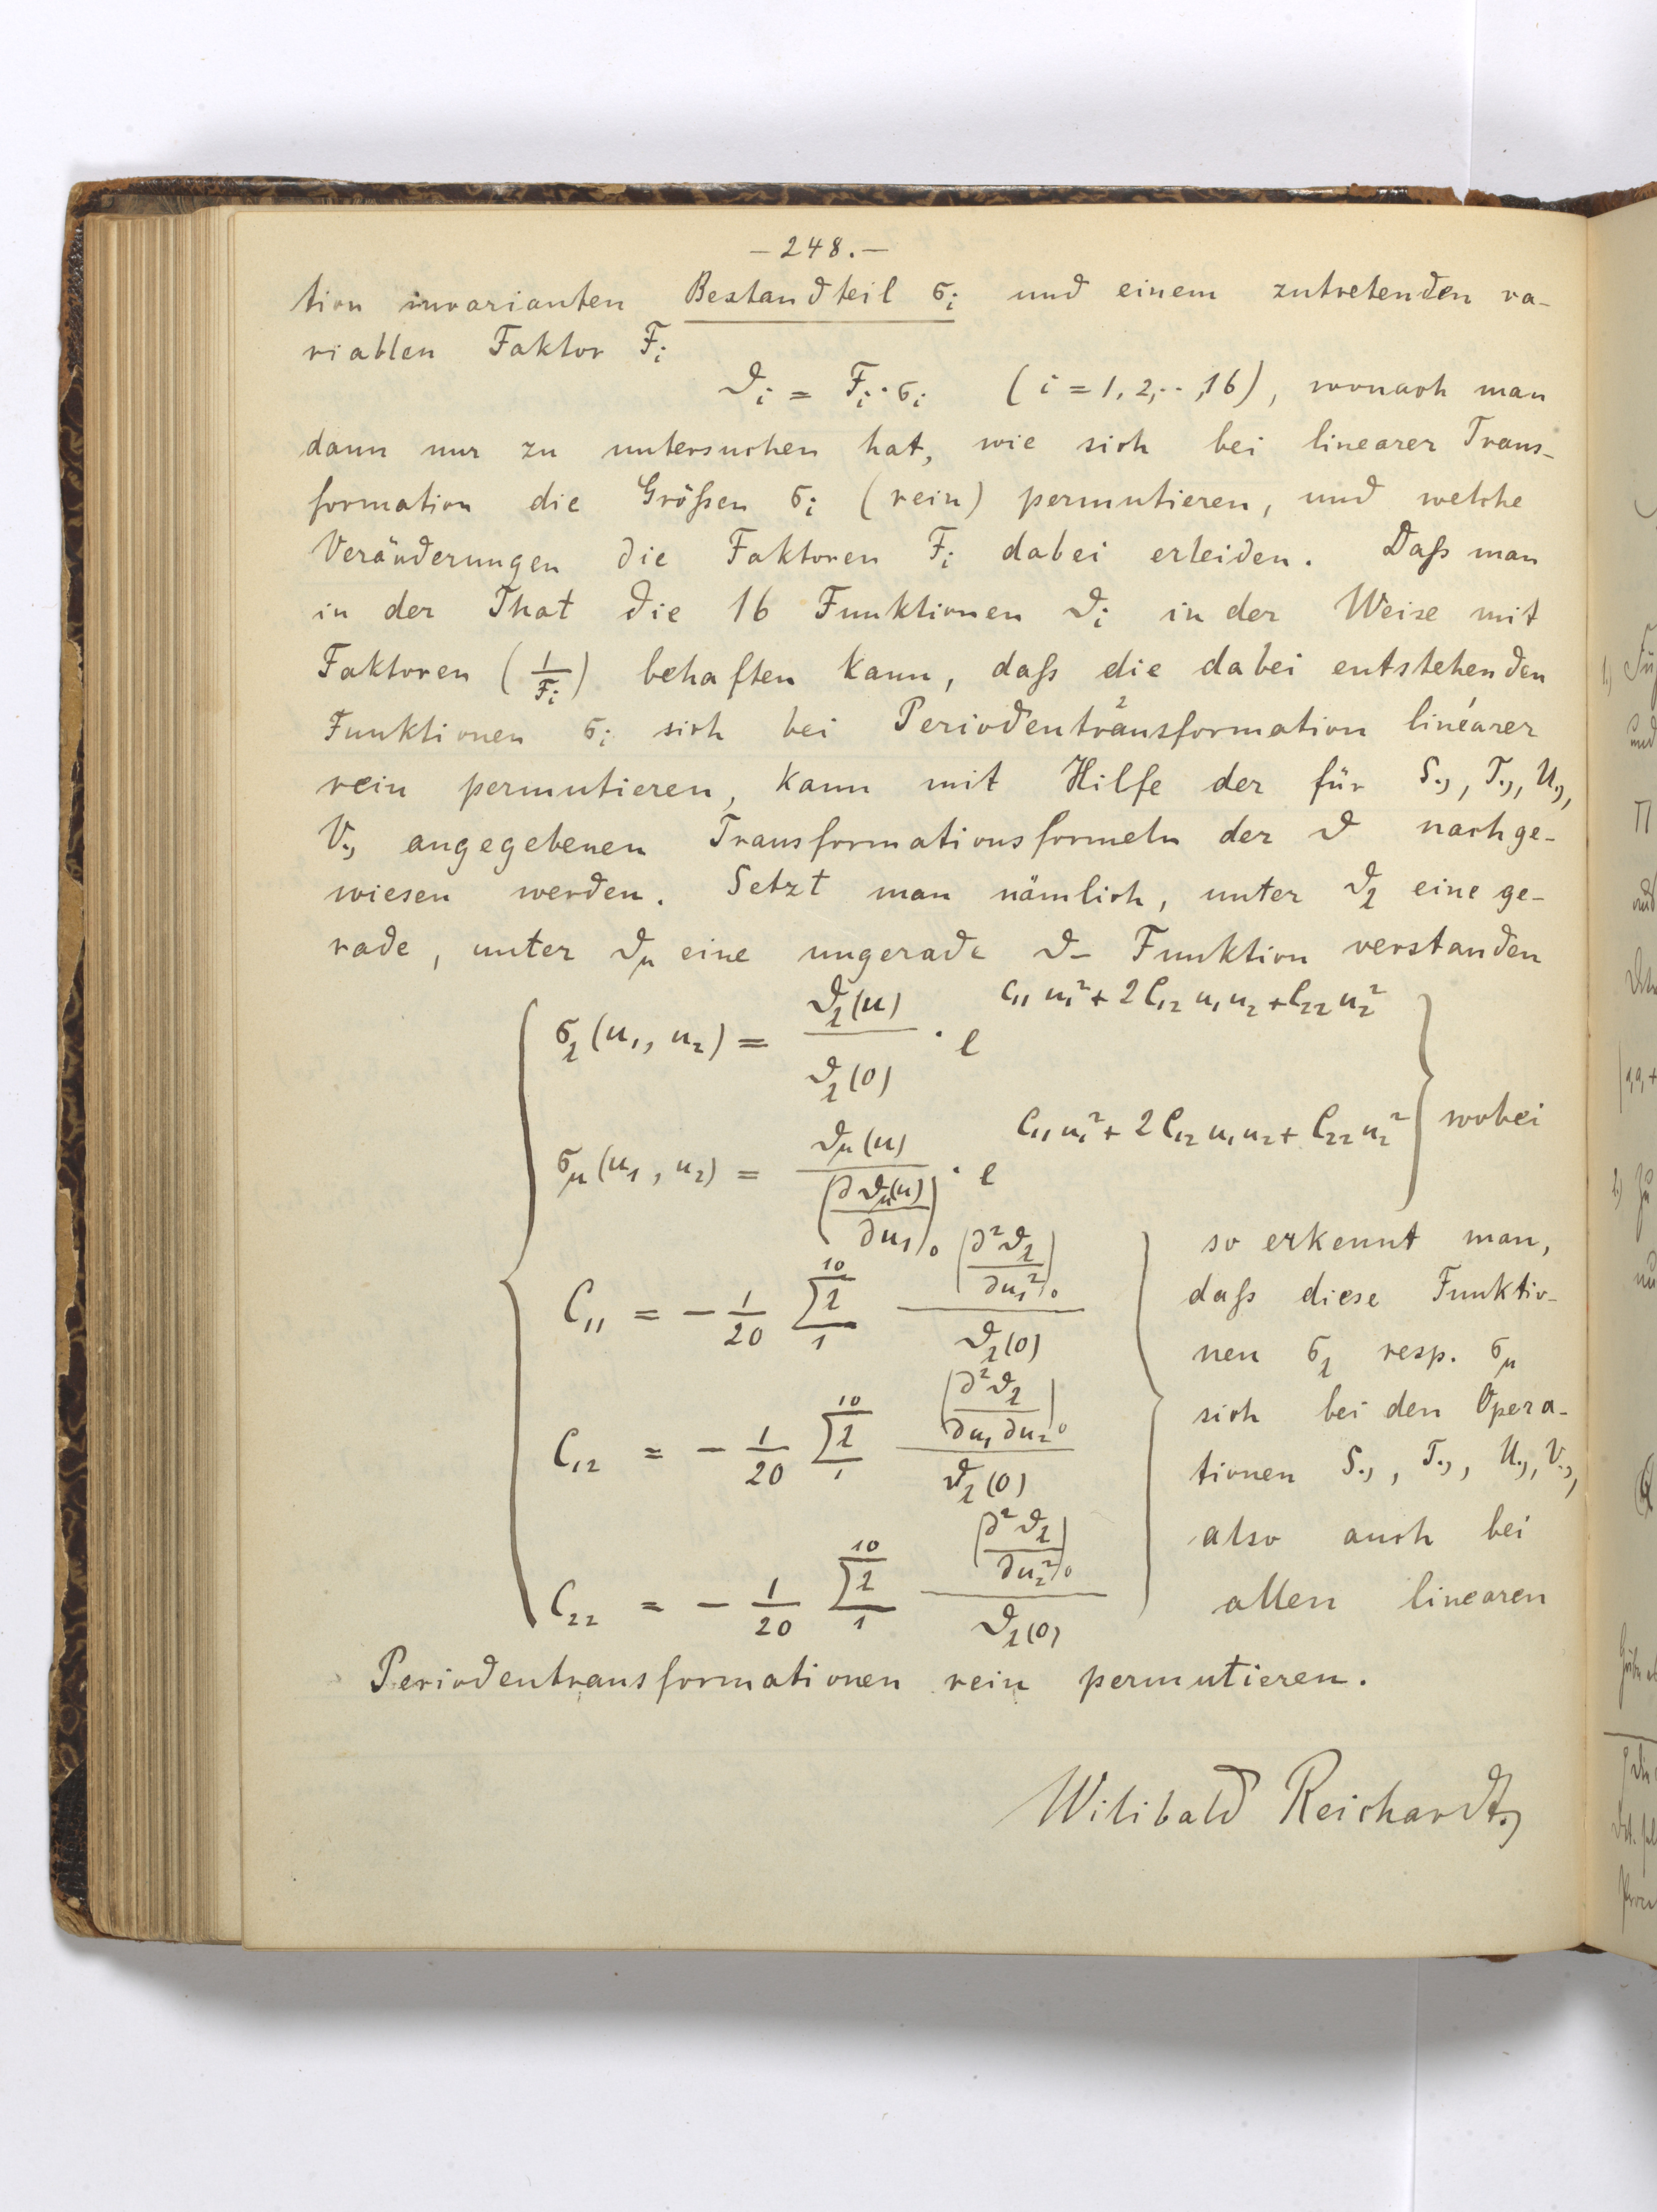 – 248. –
tion invarianten Bestandteil σ_i und einem zutretenden va-
riablen Faktor F_i
ϑ_i = F_i · σ_i (i = 1, 2, ··, 16), wonach man
dann nur zu untersuchen hat, wie sich bei linearer Trans-
formation die Größen σ_i (rein) permutieren, und welche
Veränderungen die Faktoren F_i dabei erleiden. Daß man
in der That die 16 Funktionen ϑ_i in der Weise mit
Faktoren (1/F_i) behaften kann, daß die dabei entstehenden
Funktionen σ_i sich bei Periodentransformation² linearer¹
rein permutieren, kann mit Hilfe der für S., T., U.,
V. angegebenen Transformationsformeln der ϑ nachge-
wiesen werden. Setzt man nämlich, unter ϑ_λ eine ge-
rade, unter ϑ_μ eine ungerade ϑ– Funktion verstanden
σ_λ(u₁, u₂) = ϑ_λ(u)/ϑ_λ(0) · e^{C₁₁u₁² + 2C₁₂u₁u₂ + C₂₂u₂²}
σ_μ(u₁, u₂) = ϑ_μ(u)/(∂ϑ_μ(u)/∂u₁)₀ · e^{C₁₁u₁² + 2C₁₂u₁u₂ + C₂₂u₂²} wobei
C₁₁ = – 1/20 Σ_λ₁¹⁰ (∂²ϑ_λ/∂u₁²)₀/ϑ_λ(0)
C₁₂ = – 1/20 Σ_λ₁¹⁰ (∂²ϑ_λ/∂u₁∂u₂)₀/ϑ_λ(0)
C₂₂ = – 1/20 Σ_λ₁¹⁰ (∂²ϑ_λ/∂u₂²)₀/ϑ_λ(0)
so erkennt man,
daß diese Funktio-
nen σ_λ resp. σ_μ
sich bei den Opera-
tionen S., T., U., V.,
also auch bei
allen linearen
Periodentransformationen rein permutieren.
Wilibald Reichardt.